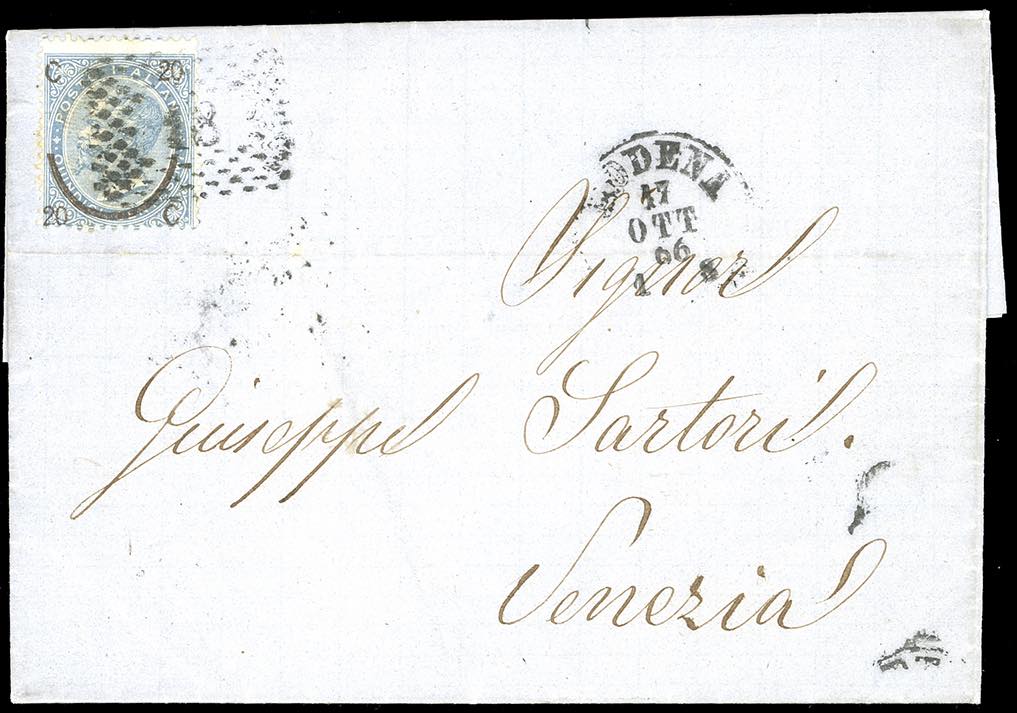 C 20
POSTE ITALIANE
20 C
8
MODENA
17
OTT
66
Signor
Giuseppe Sartori.
Venezia